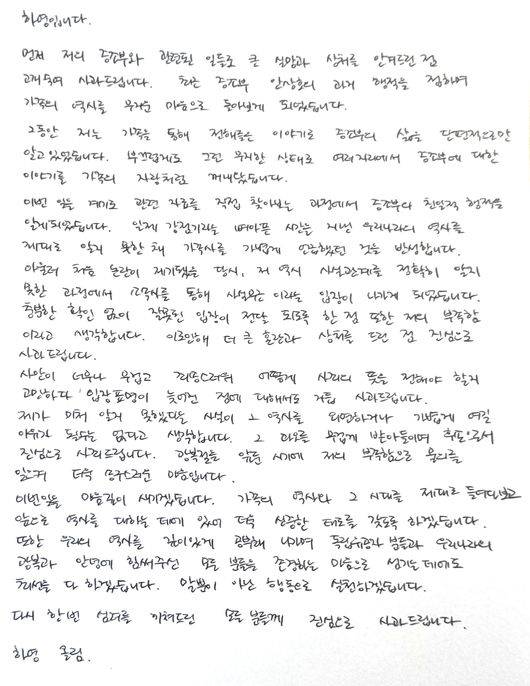 하영입니다.
먼저 저의 증조부와 관련된 일들로 큰 실망과 상처를 안겨드린 점
고개숙여 사과드립니다. 최근 증조부 안상호의 과거 행적을 접하며
가족의 역사를 무거운 마음으로 돌아보게 되었습니다.
그동안 저는 가족을 통해 전해들은 이야기로 증조부의 삶을 단편적으로만
알고 있었습니다. 부끄럽게도 그런 무지한 상태로 여러자리에서 증조부에 대한
이야기를 가족의 자랑처럼 꺼내왔습니다.
이번 일을 계기로 관련 자료를 직접 찾아보는 과정에서 증조부의 친일적 행적을
알게되었습니다. 일제 강점기라는 뼈아픈 시간을 지낸 우리나라의 역사를
제대로 알지 못한 채 가족사를 가볍게 언급했던 것을 반성합니다.
아울러 처음 논란이 제기됐을 당시, 저 역시 사실관계를 정확히 알지
못한 과정에서 소속사를 통해 사실무근 이라는 입장이 나가게 되었습니다.
충분한 확인 없이 잘못된 입장이 전달 되도록 한 점 또한 저의 부족함
이라고 생각합니다. 이로인해 더 큰 혼란과 상처를 드린 점 진심으로
사과드립니다.
사안이 너무나 무겁고 조심스러워 어떻게 사죄의 뜻을 전해야 할지
고민하다 입장표명이 늦어진 점에 대해서도 거듭 사과드립니다.
제가 미처 알지 못했다는 사실이 그 역사를 외면하거나 가볍게 여길
이유가 될수는 없다고 생각합니다. 그 마음을 무겁게 받아들이며 후손으로서
진심으로 사죄드립니다. 광복절을 앞둔 시기에 저의 부족함으로 물의를
일으켜 더욱 송구스러운 마음입니다.
이번일을 마음깊이 새기겠습니다. 가족의 역사와 그 시대를 제대로 들여다보고
앞으로 역사를 대하는 데에 있어 더욱 신중한 태도를 갖도록 하겠습니다.
또한 우리의 역사를 깊이있게 공부해 나가며 독립유공자 분들과 우리나라의
광복과 안녕에 힘써주신 모든 분들을 존경하는 마음으로 섬기는데에도
최선을 다 하겠습니다. 말뿐이 아닌 행동으로 실천하겠습니다.
다시 한번 심려를 끼쳐드린 모든 분들께 진심으로 사과드립니다.
하영 올림.